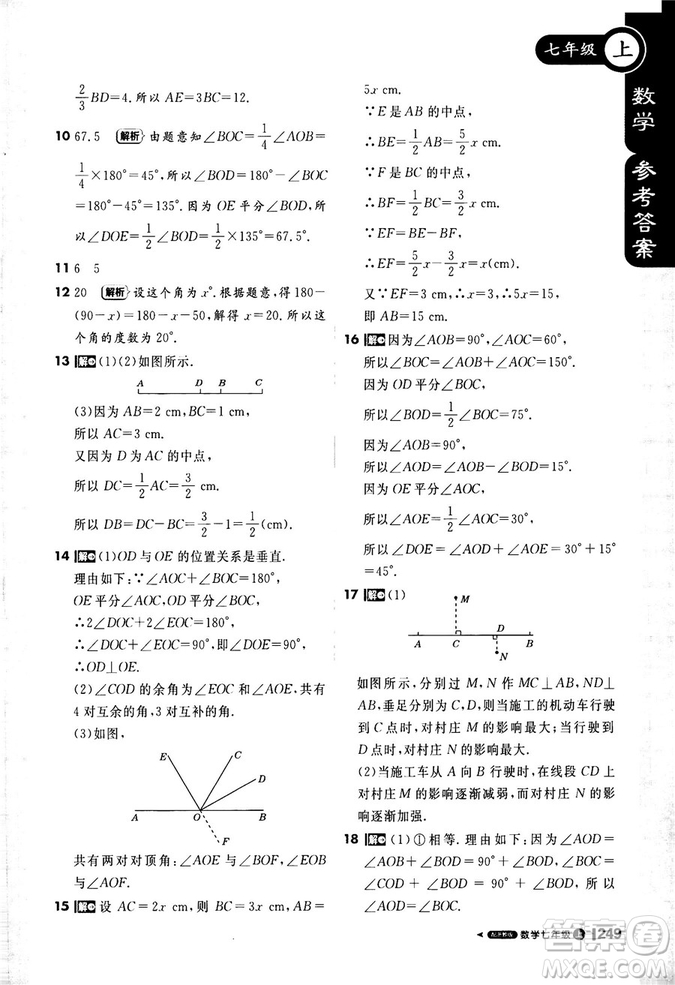 七年级 上
数学 参考答案
2/3 BD=4. 所以 AE=3BC=12.
10 67.5 解析 由题意知∠BOC=1/4∠AOB=
1/4×180°=45°, 所以∠BOD=180°-∠BOC=
180°-45°=135°. 因为 OE 平分∠BOD, 所
以∠DOE=1/2∠BOD=1/2×135°=67.5°.
11 6 5
12 20 解析 设这个角为 x°. 根据题意, 得 180-
(90-x)=180-x-50, 解得 x=20. 所以这
个角的度数为 20°.
13 解 (1)(2)如图所示.
A D B C
(3)因为 AB=2 cm, BC=1 cm,
所以 AC=3 cm.
又因为 D 为 AC 的中点,
所以 DC=1/2 AC=3/2 cm.
所以 DB=DC-BC=3/2-1=1/2(cm).
14 解 (1)OD 与 OE 的位置关系是垂直.
理由如下:∵∠AOC+∠BOC=180°,
OE 平分∠AOC, OD 平分∠BOC,
∴2∠DOC+2∠EOC=180°,
∴∠DOC+∠EOC=90°, 即∠DOE=90°,
∴OD⊥OE.
(2)∠COD 的余角为∠COE、∠AOE, 共有
4 对互余的角, 3 对互补的角.
(3)如图,
E C D A O B F
共有两对对顶角:∠AOE 与∠BOF, ∠EOB
与∠AOF.
15 解 设 AC=2x cm, 则 BC=3x cm, AB=
5x cm.
∵E 是 AB 的中点,
∴BE=1/2 AB=5/2 x cm.
∵F 是 BC 的中点,
∴BF=1/2 BC=3/2 x cm.
∵EF=BE-BF,
∴EF=5/2 x-3/2 x=x cm.
又∵EF=3 cm, ∴x=3, ∴5x=15.
即 AB=15 cm.
16 解 因为∠AOB=90°, ∠AOC=60°,
所以∠BOC=∠AOB+∠AOC=150°.
因为 OD 平分∠BOC,
所以∠BOD=1/2∠BOC=75°.
因为∠AOB=90°,
所以∠AOD=∠AOB-∠BOD=15°.
因为 OE 平分∠AOC,
所以∠AOE=1/2∠AOC=30°,
所以∠DOE=∠AOE+∠AOD=30°+15°
=45°.
17 解 (1)
M A C D B N
如图所示, 分别过 M, N 作 MC⊥AB, ND⊥
AB, 垂足分别为 C, D, 当施工的机动车行驶
到 C 点时, 对村庄 M 的影响最大; 当行驶到
D 点时, 对村庄 N 的影响最大.
(2)当施工车从 A 向 B 行驶时, 在线段 CD 上
对村庄 M 的影响逐渐减弱, 而对村庄 N 的影
响逐渐加强.
18 解 (1)①相等. 理由如下:∵∠AOD=
∠AOB+∠BOD=90°+∠BOD, ∠BOC=
∠COD+∠BOD=90°+∠BOD, 所以
∠AOD=∠BOC.
数学七年级 上 249
答案圈
MXQE.COM